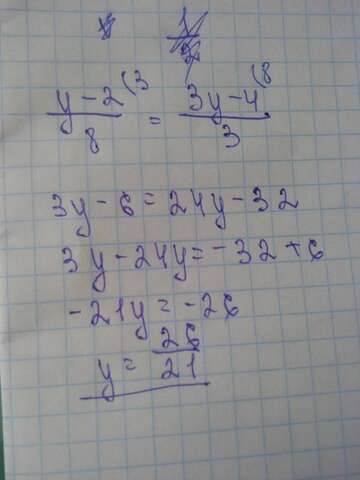 y-2(3 / 8 = 3y-4(8 / 3
3y-6=24y-32
3y-24y=-32+6
-21y=-26
y= 26/21